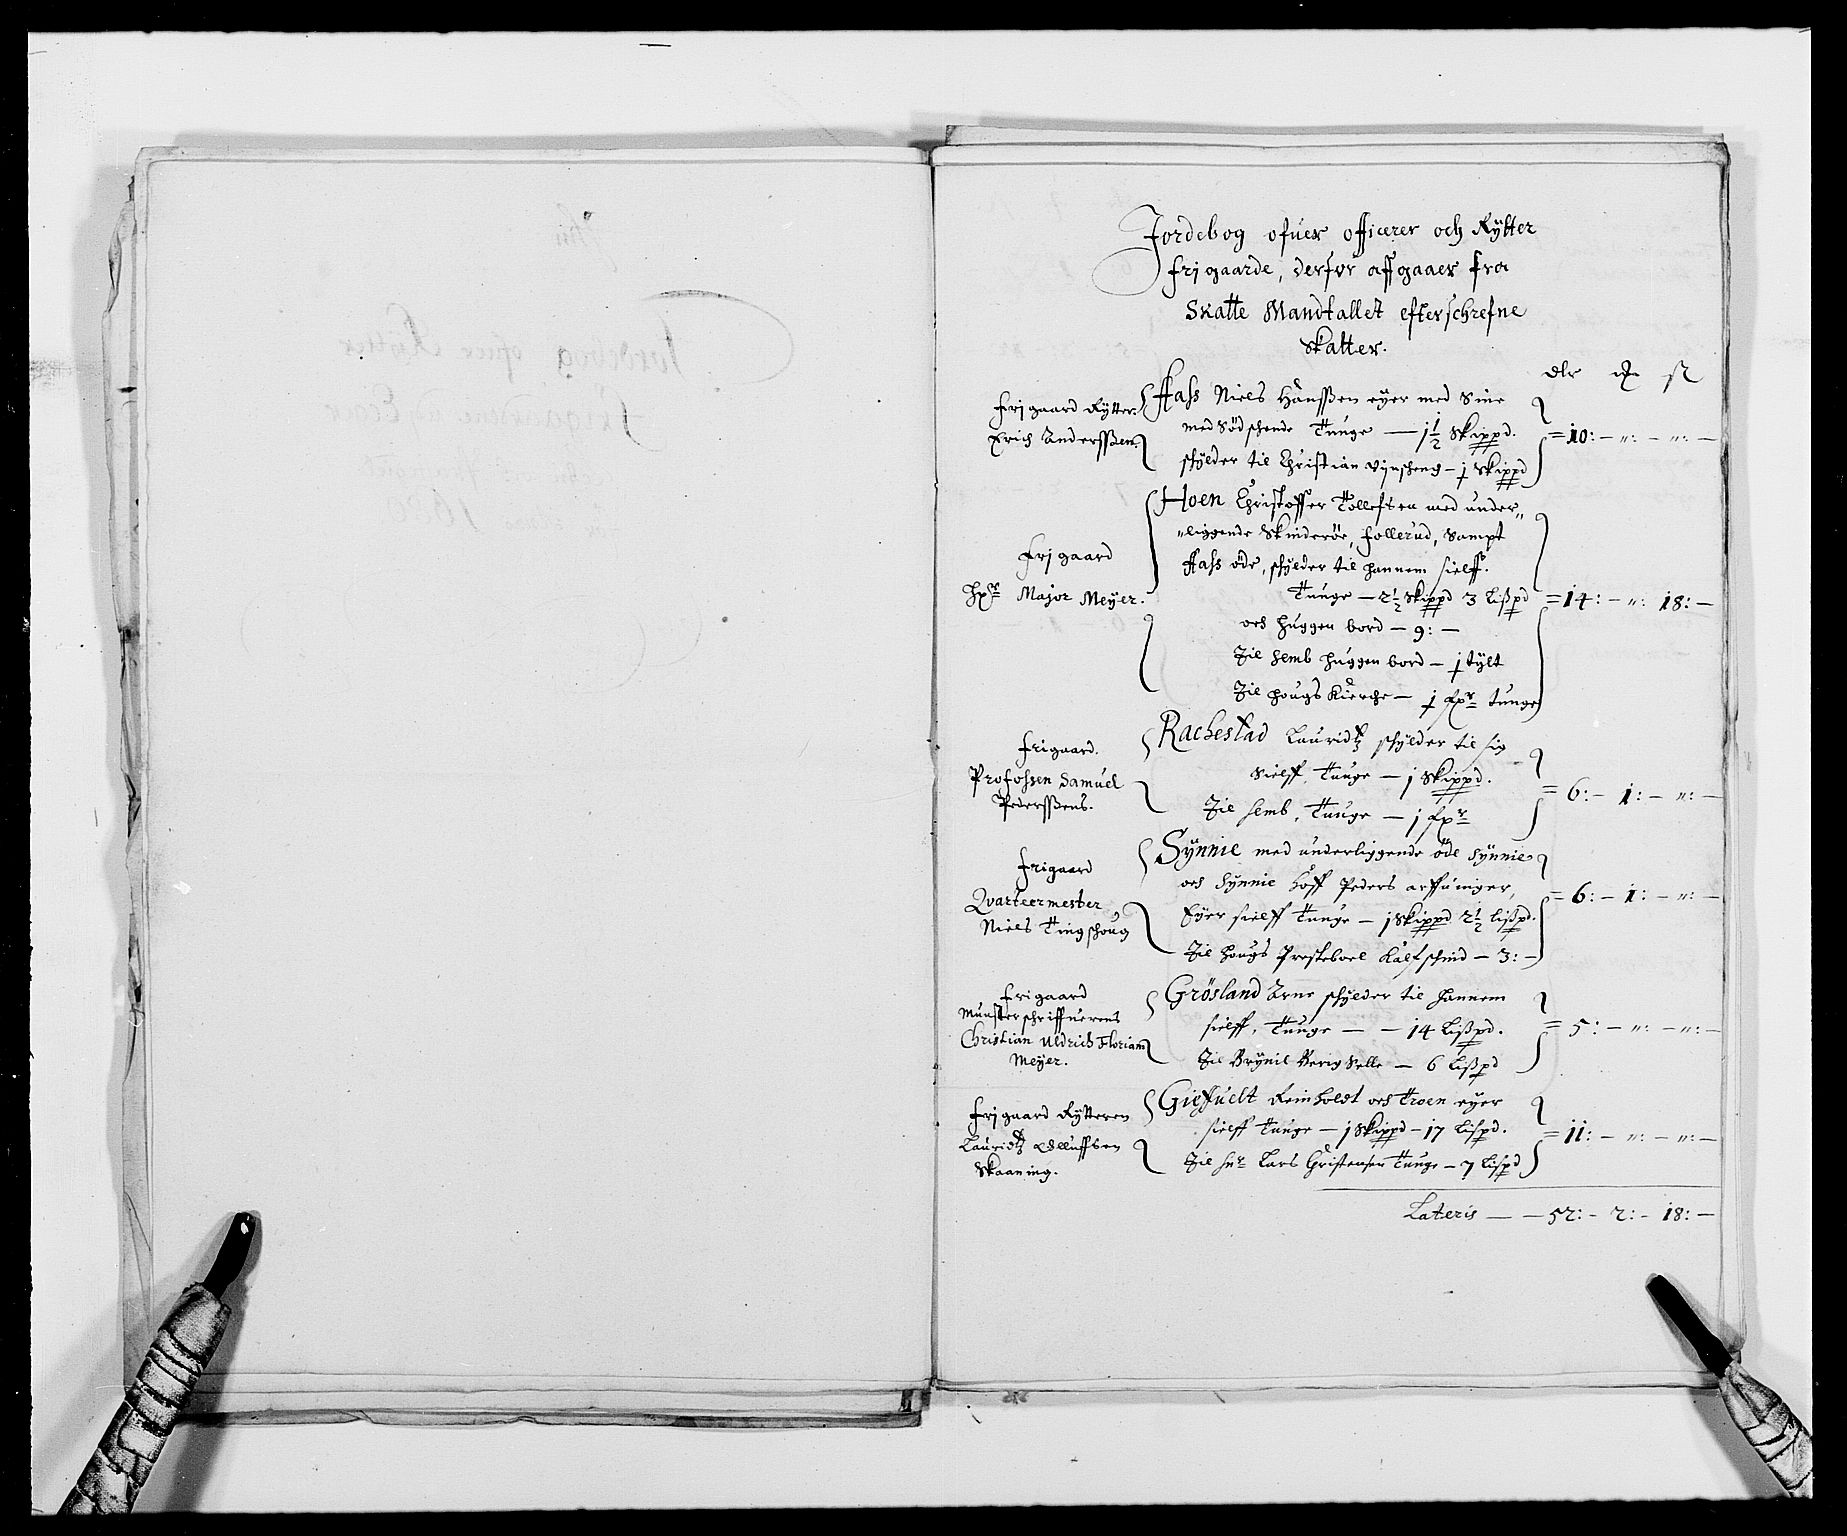 Jordebog ofuer officerer och Rÿtter
frj gaarde, derfor affgaaer fra
Skatte Mandtallet efterschrefne
Skatter.
dlr
Frj gaard Rÿtter
Erich Anderssen
Hass Niels Hanssøen eÿer med Sine
med Sødschende Tunge — 1½ Skippd.
schÿlder til Christian — j Skippd
= 10: — „: — „: —
Frj gaard
Hr Major Meÿer.
Hoen Christoffer Tollefsen med under„
„liggende Skinderöe, follerud, Sampt
Hass öde, schÿlder til hannem sielff.
Tunge — 2½ Skippd 3 Lißpd
och huggen bord — 9: —
Til Semb huggen bord — j tÿlt
Til Hougs Kierche — j fxr tunge
= 14: — „: 18: —
Frigaard.
Profossen Samuel
Pederssøns.
Rachestad Lauridtz schÿlder til sig
Sielff, Tunge — j Skippd.
Til Semb, Tunge — j fxr
= 6: — 1: — „: —
Frigaard
Qvarteermester
Niels Tingshoug
Sÿnnie med underliggende öde Sÿnnie
och Sÿnnie hoff Peders arffuinger,
Eÿer sielff Tunge — j Skippd 2½ Lißpd.
Til Hougs Presteboel Kalfschind — 3: —
= 6: — 1: — „: —
Frigaard
Munsterschriffuerens
Christian Uldrich Florian
Meÿer.
Grösland Arne schÿlder til hannem
sielff, Tunge — — 14 Lißpd.
Til Brÿnil Berig Selle — 6 Lißpd
= 5: — „: — „: —
Frj gaard Rÿtteren
Lauridtz Olluffsen
Skaaning.
Gieffuelt Reinholdt och Troen eÿer
sielff Tunge — j Skippd — 17 Lispd.
Til Sr Lars Christensen Tunge — 7 Lispd
= 11: — „: — „: —
Lateris — — 52: — 2: — 18: —